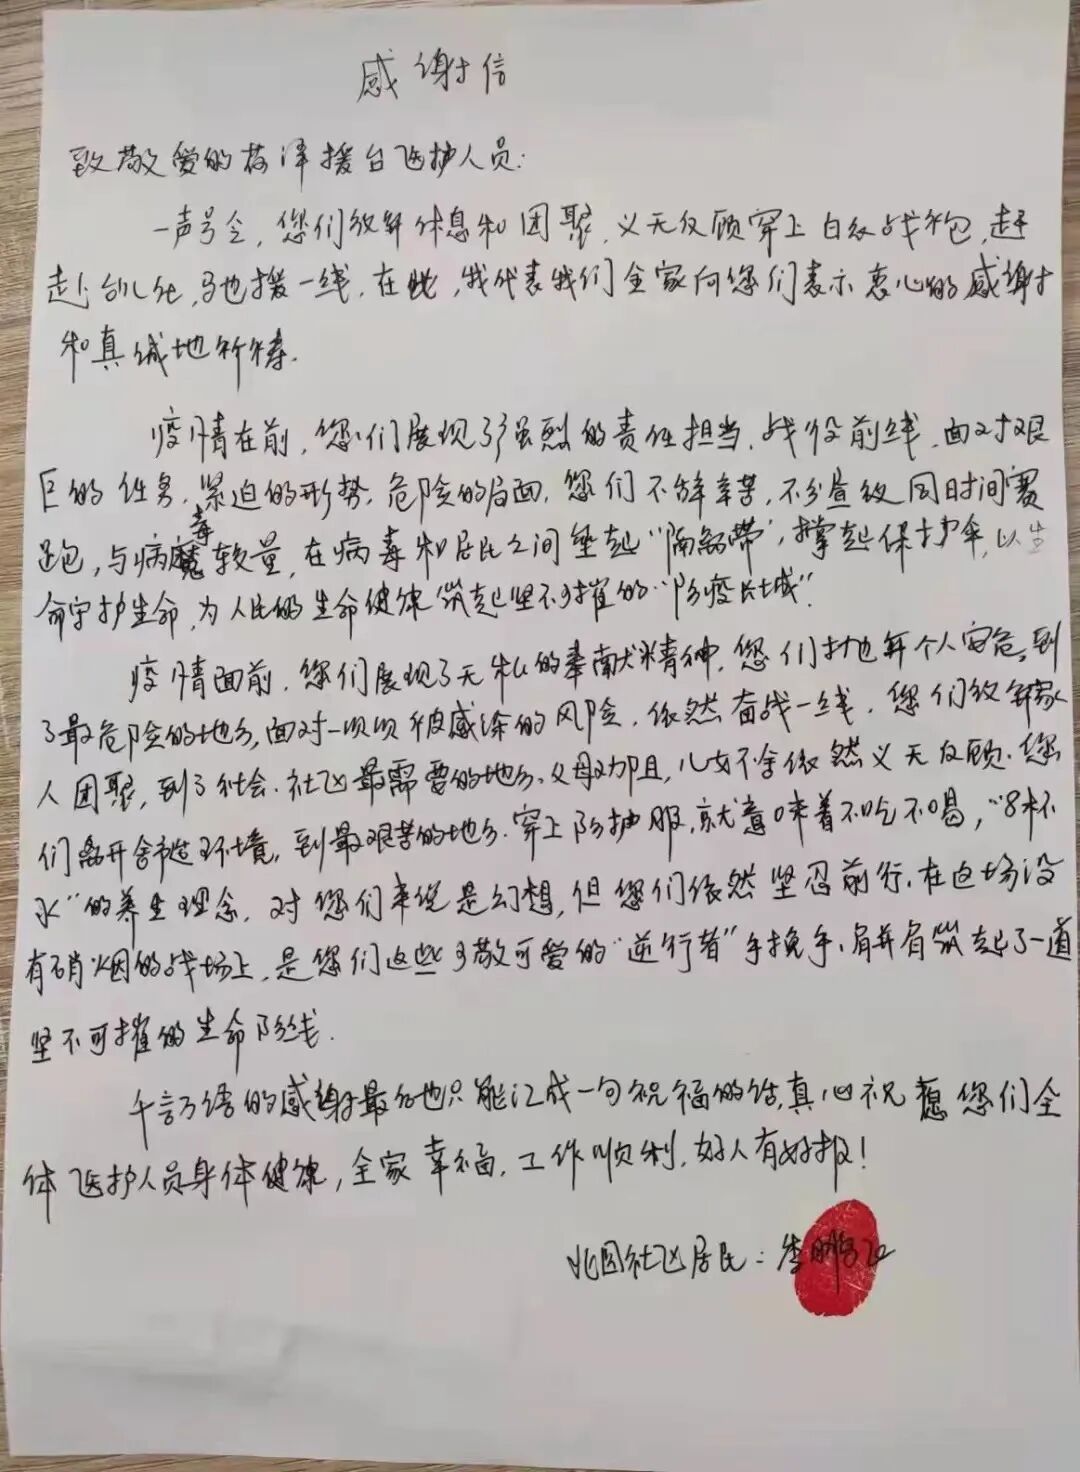 感谢信
致敬爱的菏泽援台医护人员:
一声号令,您们放弃休息和团聚,义无反顾穿上白衣战袍,赶
赴台儿庄,驰援一线,在此,我代表我们全家向您们表示衷心的感谢
和真诚地祈祷.
疫情在前,您们展现了强烈的责任担当,战役前线,面对艰
巨的任务,紧迫的形势,危险的局面,您们不辞辛苦,不分昼夜同时间赛
跑,与病毒较量,在病毒和居民之间垫起“隔离带”,撑起保护伞,以生
命守护生命,为人民的生命健康筑起坚不可摧的“防疫长城”.
疫情面前,您们展现了无私的奉献精神,您们抛弃个人安危,到
了最危险的地方,面对一项项被感染的风险,依然奋战一线,您们放弃家
人团聚,到了社会、社区最需要的地方,父母劝阻,儿女不舍依然义无反顾.您
们离开舒适环境,到最艰苦的地方.穿上防护服,就意味着不吃不喝,“8杯
水”的养生理念,对您们来说是幻想,但您们依然坚忍前行.在这场没
有硝烟的战场上,是您们这些可敬可爱的“逆行者”手挽手、肩并肩筑起了一道
坚不可摧的生命防线.
千言万语的感谢最后也只能汇成一句祝福的话,真心祝愿您们全
体医护人员身体健康,全家幸福,工作顺利,好人有好报!
北园社区居民:李